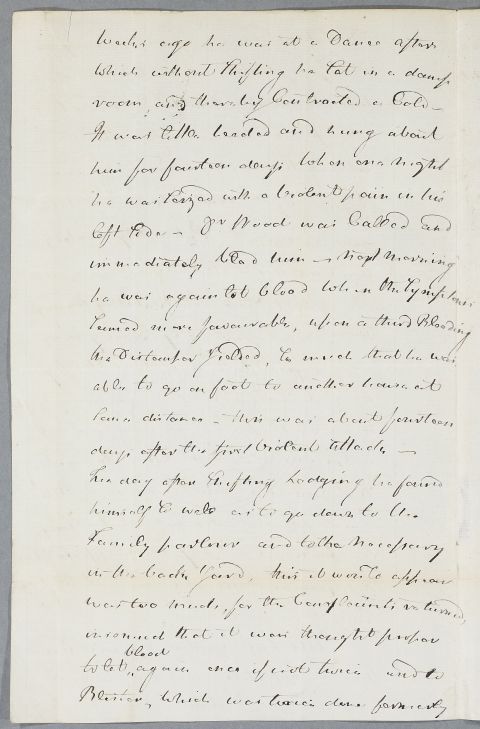 weeks ago he was at a Dance after
which without Shifting he Sat in a damp
room, and thereby Contracted a Cold —
It was little heeded and hung about
him for fourteen days when one night
he was Seized with a Violent pain in his
left Side — Dr Wood was Called and
immediately blead him — next morning
he was again let blood when the Symptoms
Seemed more favourable, upon a third Bleeding
the Distemper Yielded, So much that he was
able to go on foot to another house at
Some distance — this was about fourteen
days after the first Violent attack —
The day after Shifting Lodging he found
himself So well as to go down to the
Family parlour and to the Necessary
in the back Yard, this it would appear
was too much, for the Complaints returned,
in so much that it was thought proper
to let blood again once if not twice and to
Blister, which was twice done formerly